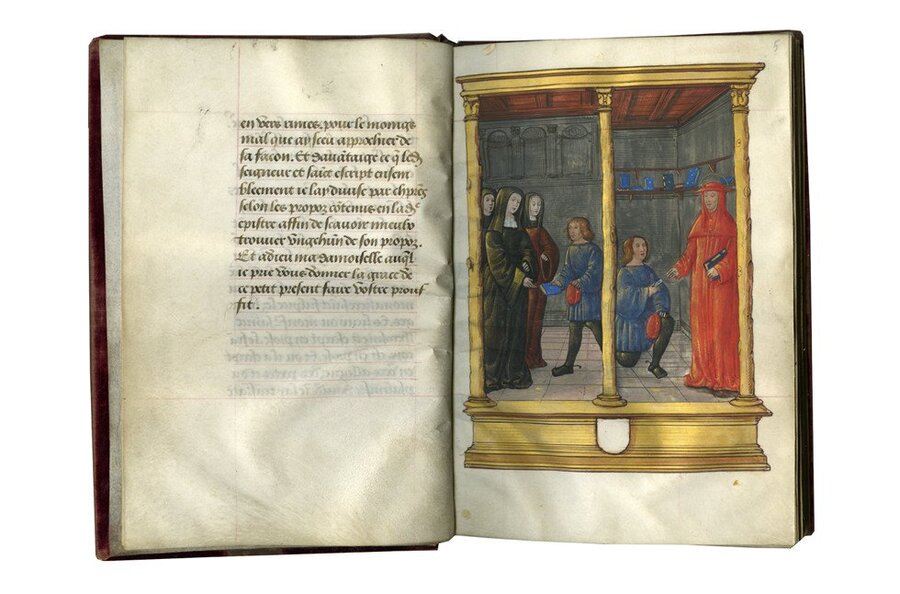 en vers rimes, pour le moings
mal que ay sceu approchier de
sa facon. Et davātaige de q̄ led
seigneur et sainct escript ensem
blement ie lay divise par chp̄rēs
selon les propoz cōtenus en lad
epistre affin de scavoir mieulx
trouver vngchūn de son propoz.
Et adieu ma damoiselle auq̄l
ie prie vous donner la grace de
ce petit present faire vostre prouf
fit.
5